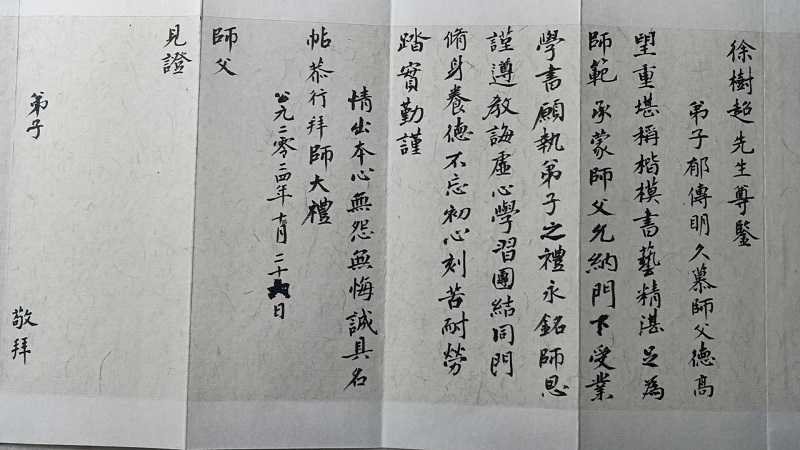 徐樹超先生尊鑒
弟子郁傳明久慕師父德高
望重堪稱楷模書藝精湛足為
師範承蒙師父允納門下受業
學書願執弟子之禮永銘師恩
謹遵教誨虛心學習團結同門
脩身養德不忘初心刻苦耐勞
踏實勤謹
情出本心無怨無悔誠具名
帖恭行拜師大禮
公元二零二四年十月二十日
師父
見證
弟子
敬拜